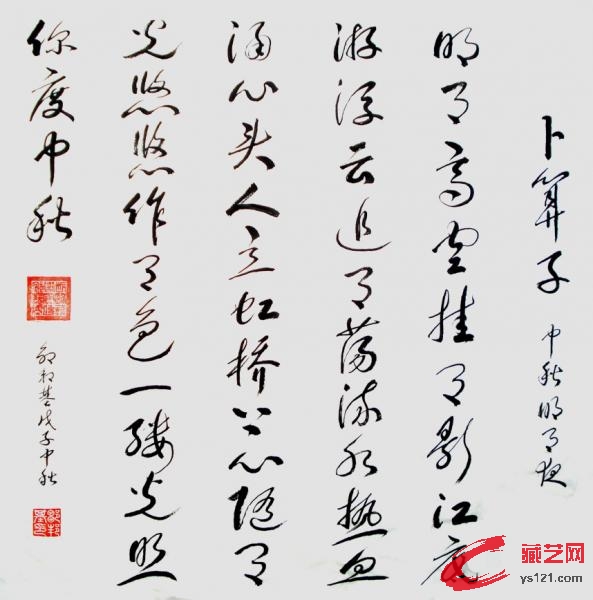 卜算子 中秋明月夜
明月高空挂月影江底
游浮云追月荡流水热血
涌心头人立虹桥上心随月
光悠悠作月色一缕光照
你度中秋
邹邦基戊子中秋
藏艺网
ys121.com